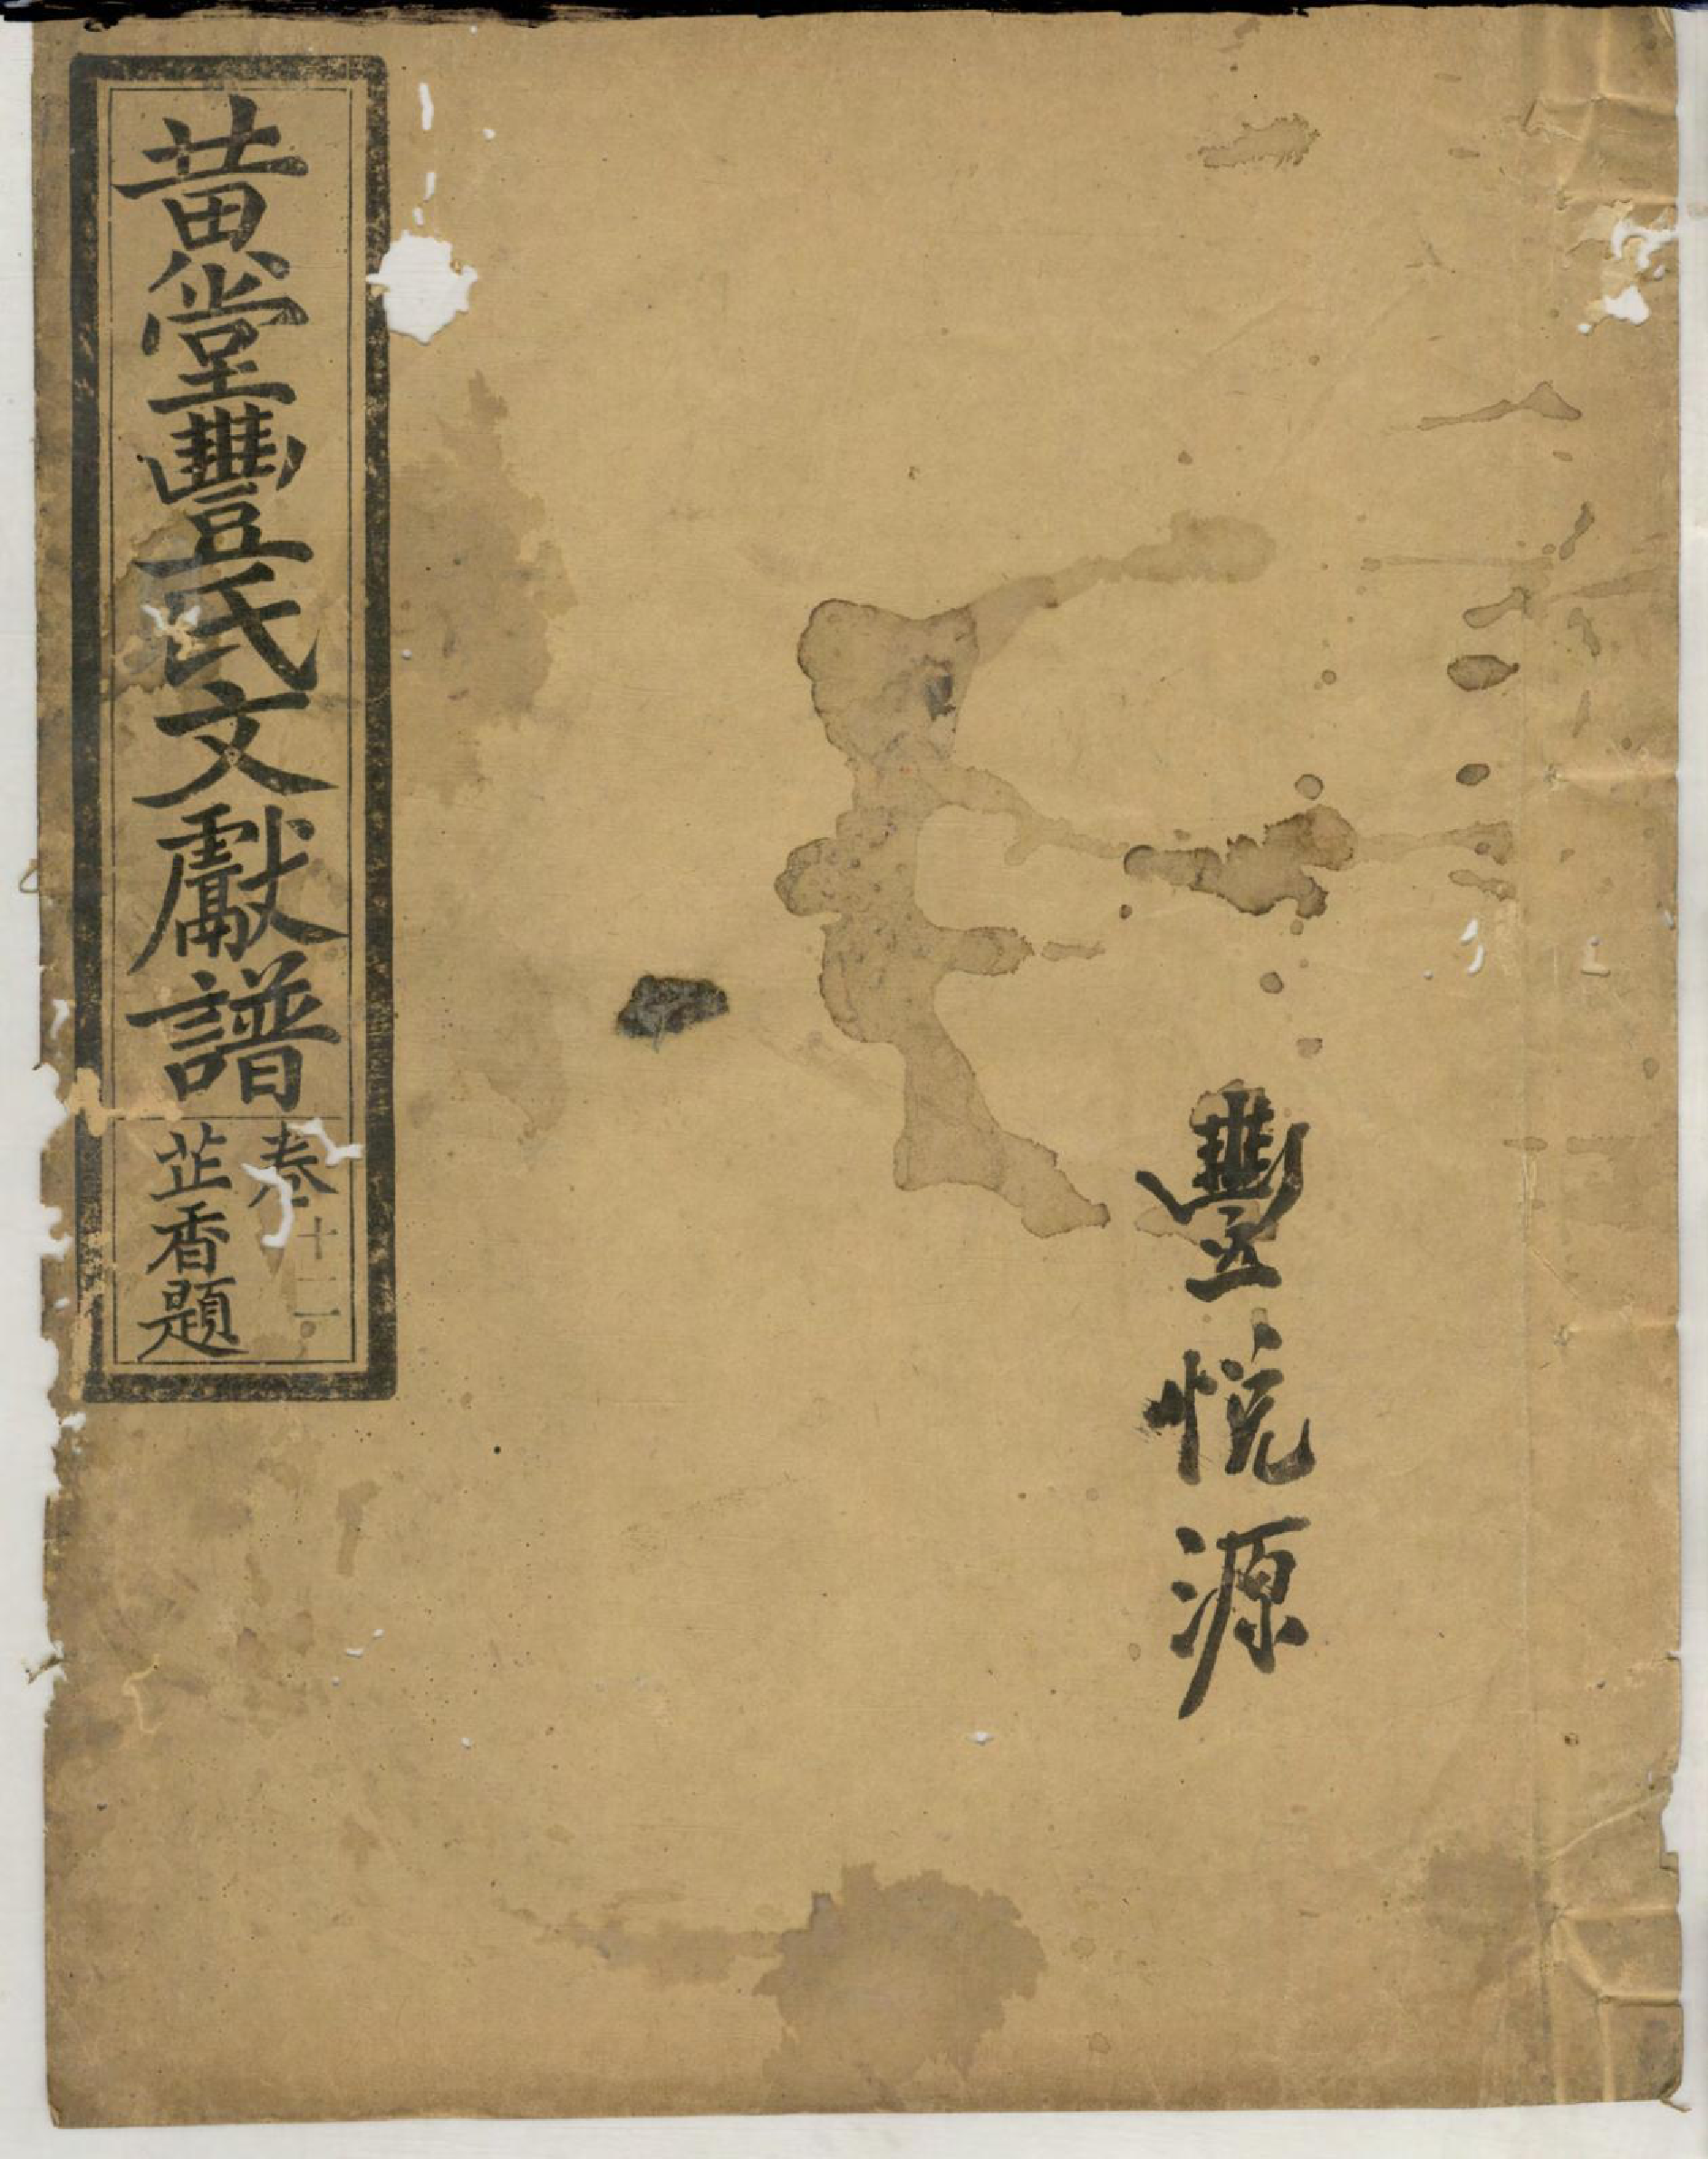 豐悅源
黃堂豐氏文獻譜
卷十二
芷香題